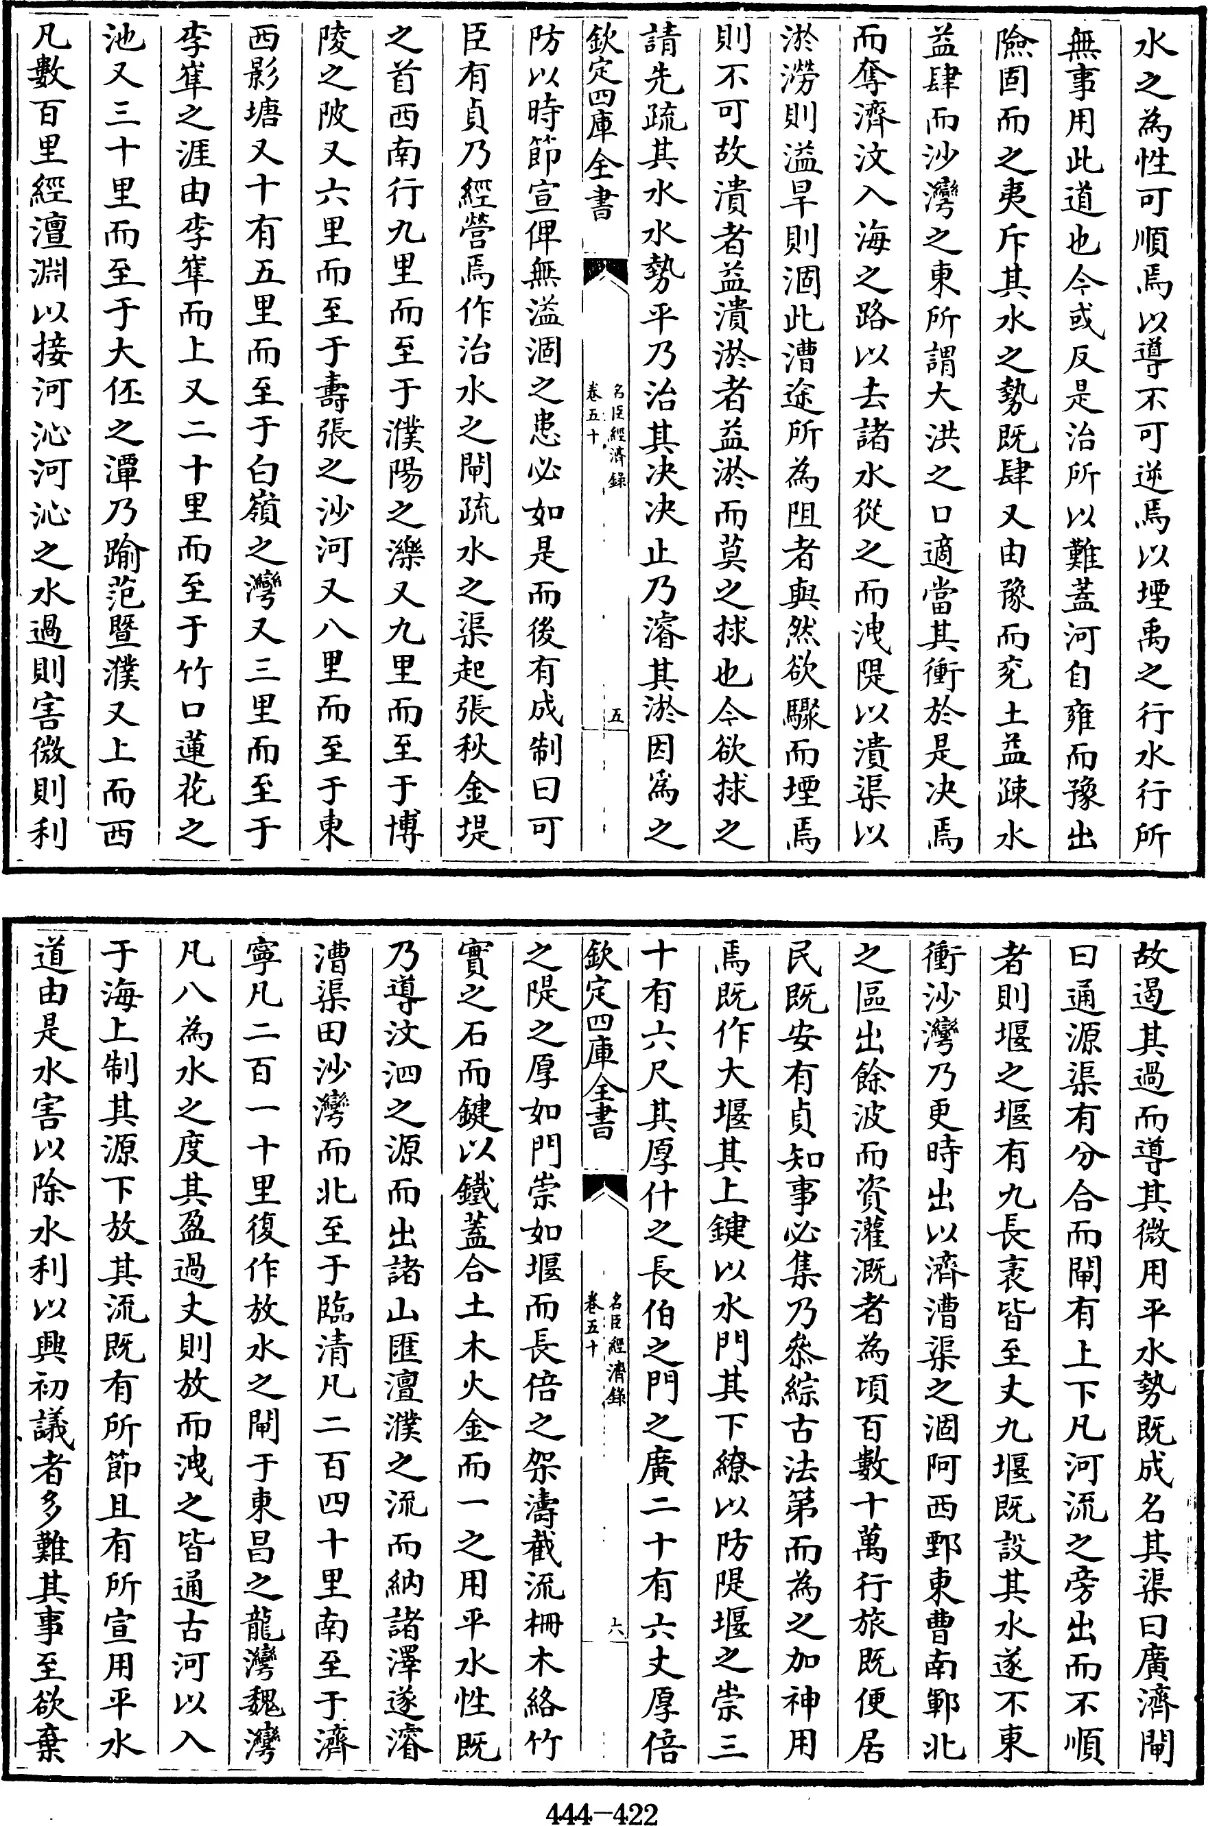 水之為性可順焉以導不可逆焉以堙禹之行水行所
無事用此道也今或反是治所以難蓋河自雍而豫出
險固而之夷斥其水之勢既肆又由豫而兖土益疎水
益肆而沙灣之東所謂大洪之口適當其衝於是决焉
而奪濟汶入海之路以去諸水從之而洩隄以潰渠以
淤澇則溢旱則涸此漕途所為阻者與然欲驟而堙焉
則不可故潰者益潰淤者益淤而莫之捄也今欲捄之
請先疏其水水勢平乃治其决决止乃濬其淤因為之
欽定四庫全書
名臣經濟録
卷五十
五
防以時節宣俾無溢涸之患必如是而後有成制曰可
臣有貞乃經營焉作治水之閘疏水之渠起張秋金堤
之首西南行九里而至于濮陽之濼又九里而至于博
陵之陂又六里而至于壽張之沙河又八里而至于東
西影塘又十有五里而至于白嶺之灣又三里而至于
李𡸣之涯由李𡸣而上又二十里而至于竹口蓮花之
池又三十里而至于大伾之潭乃踰范暨濮又上而西
凡數百里經澶淵以接河沁河沁之水過則害微則利
故遏其過而導其微用平水勢既成名其渠曰廣濟閘
曰通源渠有分合而閘有上下凡河流之旁出而不順
者則堰之堰有九長袤皆至丈九堰既設其水遂不東
衝沙灣乃更時出以濟漕渠之涸阿西鄄東曹南鄆北
之區出餘波而資灌溉者為頃百數十萬行旅既便居
民既安有貞知事必集乃叅綜古法第而為之加神用
焉既作大堰其上鍵以水門其下繚以防隄堰之崇三
十有六尺其厚什之長伯之門之廣二十有六丈厚倍
欽定四庫全書
名臣經濟録
卷五十
六
之隄之厚如門崇如堰而長倍之架濤截流柵木絡竹
實之石而鍵以鐵蓋合土木火金而一之用平水性既
乃導汶泗之源而出諸山匯澶濮之流而納諸澤遂濬
漕渠由沙灣而北至于臨清凡二百四十里南至于濟
寧凡二百一十里復作放水之閘于東昌之龍灣魏灣
凡八為水之度其盈過丈則放而洩之皆通古河以入
于海上制其源下放其流既有所節且有所宣用平水
道由是水害以除水利以興初議者多難其事至欲棄
444-422